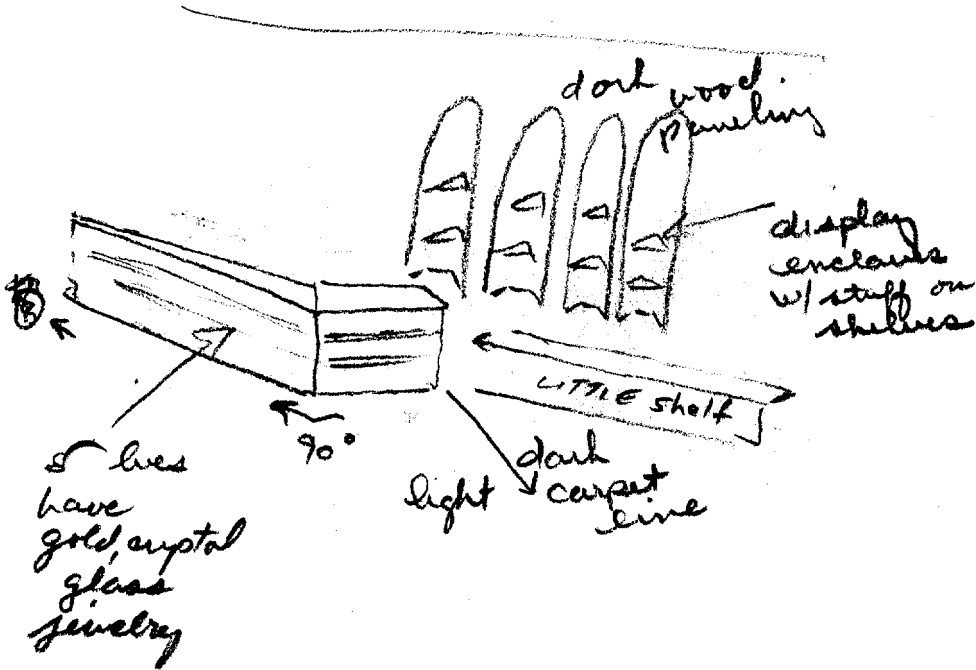 dark wood
paneling
display
enclaves
w/ stuff on
shelves
LITTLE shelf
90°
dark
light carpet
line
have
gold, crystal
glass
jewelry